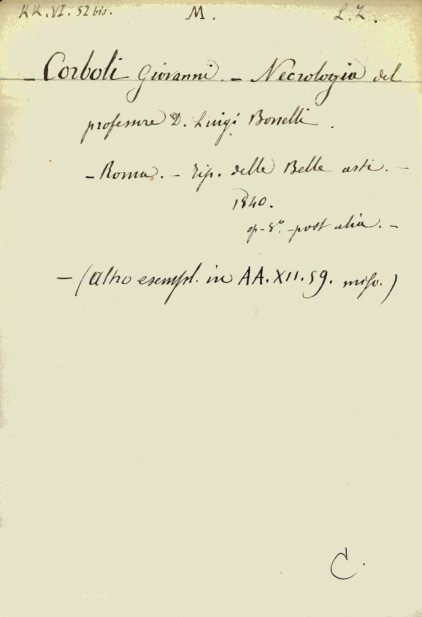 KK.VI.52 bis. M. L.Z.
Corboli Giovanni. - Necrologia del
professore D. Luigi Bonelli.
- Roma. - Tip. delle Belle arti. -
1840.
op-8º. - post alia. -
- (altro esempl. in AA.XII.59. misc.)
C.